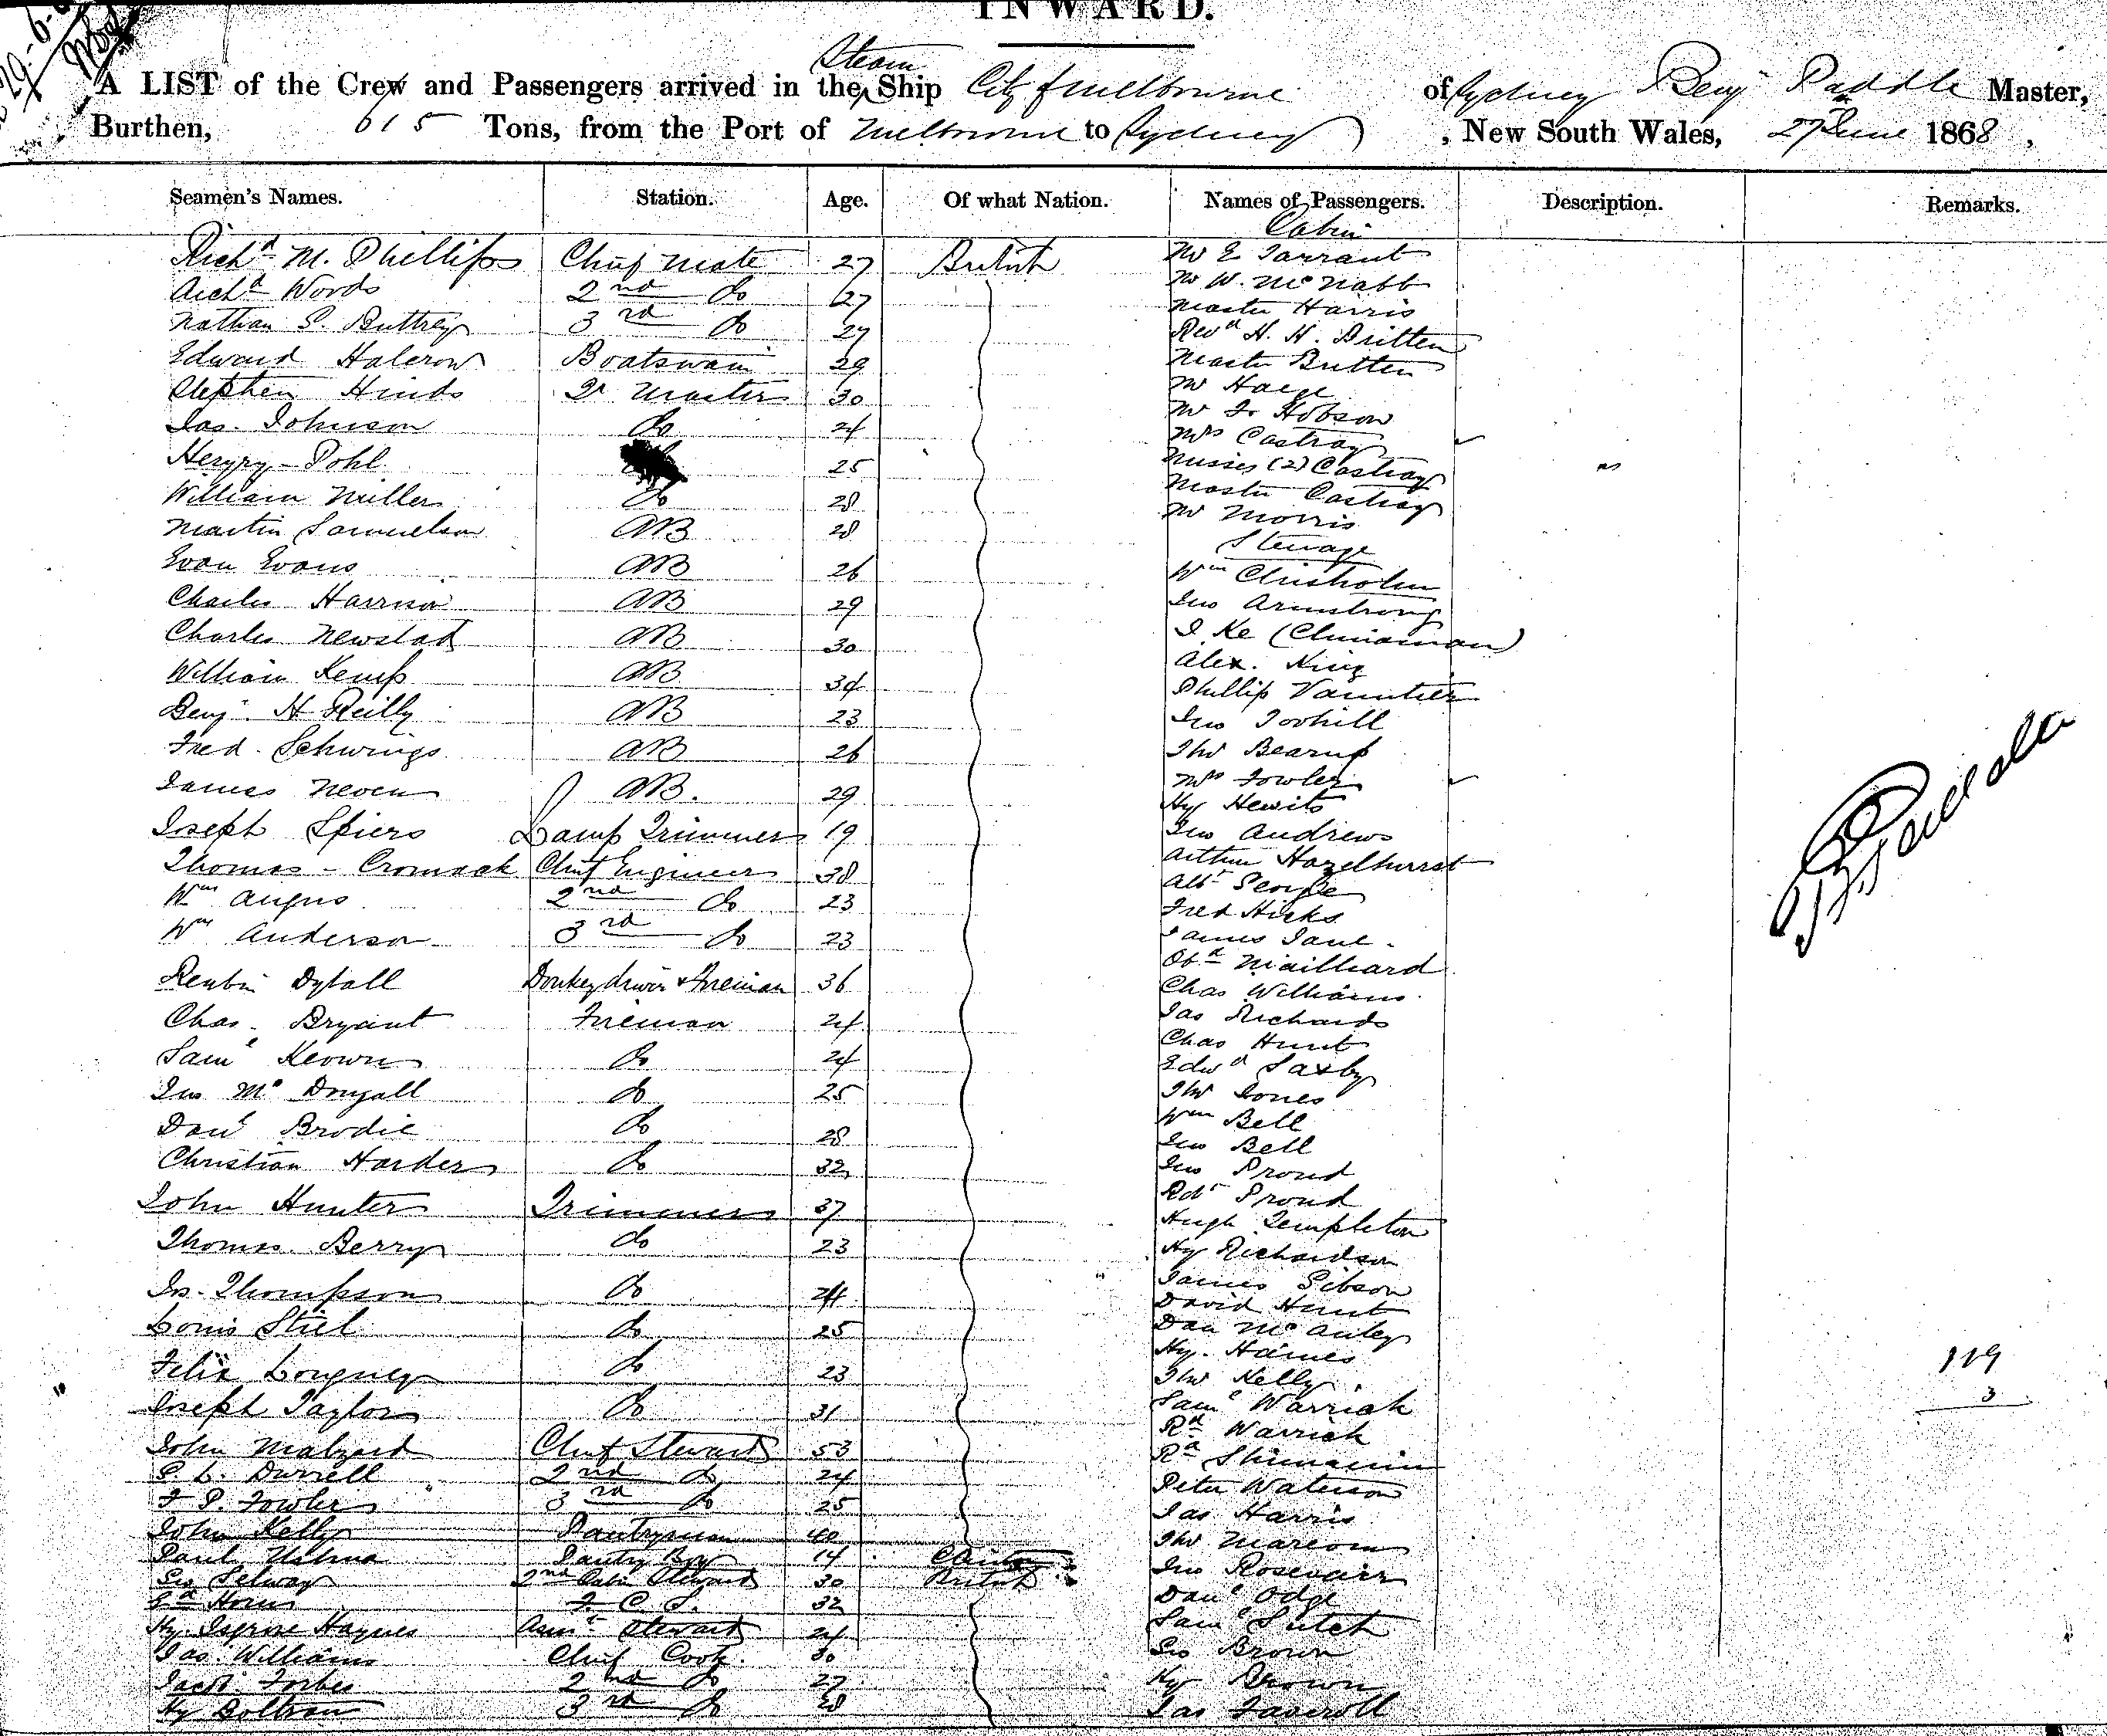 INWARD.
29-6-
A LIST of the Crew and Passengers arrived in the Steam Ship City of Melbourne of Sydney Benj Paddle Master,
Burthen, 615 Tons, from the Port of Melbourne to Sydney, New South Wales, 27 June 1868,
Seamen's Names. Station. Age. Of what Nation. Names of Passengers. Description. Remarks.
Cabin
Richd M. Phillips Chief Mate 27 British Mr E Tarrant
Archd Words 2nd do 27 Mr W. McNabb
Nathan S. Buttrey 3rd do 27 Master Harris
Revd H. H. Britten
Edward Halcrow Boatswain 29 Master Britten
Stephen Hinds Qr Master 30 Mr Haege
Jas. Johnson do 24 Mr Fr Hobson
Mrs Castray
Henry Pohl 25 Misses (2) Castray
William Miller do 28 Master Castray
Martin Samuelson AB 28 Mr Morris
Steerage
Evan Evans AB 26 Wm Chisholm
Charles Harrison AB 29 Jno Armstrong
Charles Newstad AB 30 J. Ke (Chinaman)
William Kemp AB 34 Alex. King
Phillip Vauntier
Benj. H Reilly AB 23 Jno Toohill
Fred. Schwings AB 26 Thos Bearup
James Neven AB. 29 Mrs Fowler
Hy Hewits
Joseph Spiers Lamp Trimmer 19 Jno Andrews
Thomas Cromack Chief Engineer 38 Arthur Hazelhurst
Wm Angus 2nd do 23 Albt George
Fred Hicks
Wm Anderson 3rd do 23 James Jane
Obd Mailliard
Reubin Dyball Donkey driver & Fireman 36 Chas Williams
Chas. Bryant Fireman 24 Jas Richards
Chas Hunt
Saml Keown do 24 Edwd Saxby
Jno McDougall do 25 Thos Jones
Wm Bell
Danl Brodie do 28 Jno Bell
Christian Harder do 32 Jno Proud
John Hunter Trimmer 37 Robt Proud
Hugh Templeton
Thomas Berry do 23 Hy Richardson
James Gibson
Js. Thompson do 24 David Hunt
Louis Stiel do 25 Dan McAuley
Hy. Haines 119
Felix Longney do 23 Thos Kelly 3
Joseph Taylor do 31 Saml Warrick
Rd Warrick
John Malzard Chief Steward 53 Rd
P L. Durrell 2nd do 24 Peter Waterson
F P. Fowler 3rd do 25 Jas Harris
John Kelly Pantryman 40 Thos Marcom
Paul Pantry Boy 14
Geo Selway 2nd Cabin Steward 30 British Jno Rosevarr
F. C. S. 32 Danl Odge
Hy. Isgrove Haynes Assnt Steward 24 Saml Sutch
Jas. Williams Chief Cook 30 Geo Brown
Jacob Forbes 2nd do 27 Hy Brown
Hy Boltram 3rd do 28 Jas